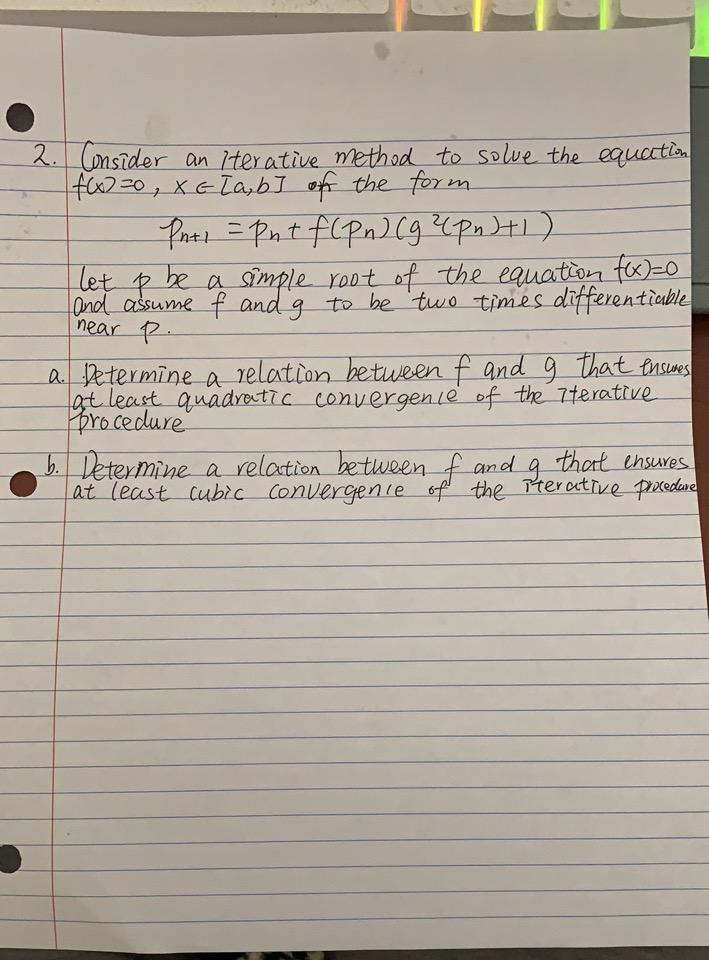 2. Consider an iterative method to solve the equation
f(x)=0, x ∈ [a,b] of the form
Pn+1 = Pn + f(Pn)(g²(Pn)+1)
Let p be a simple root of the equation f(x)=0
and assume f and g to be two times differentiable
near p.
a. Determine a relation between f and g that ensures
at least quadratic convergenie of the iterative
procedure
b. Determine a relation between f and g that ensures
at least cubic convergenie of the iterative procedure